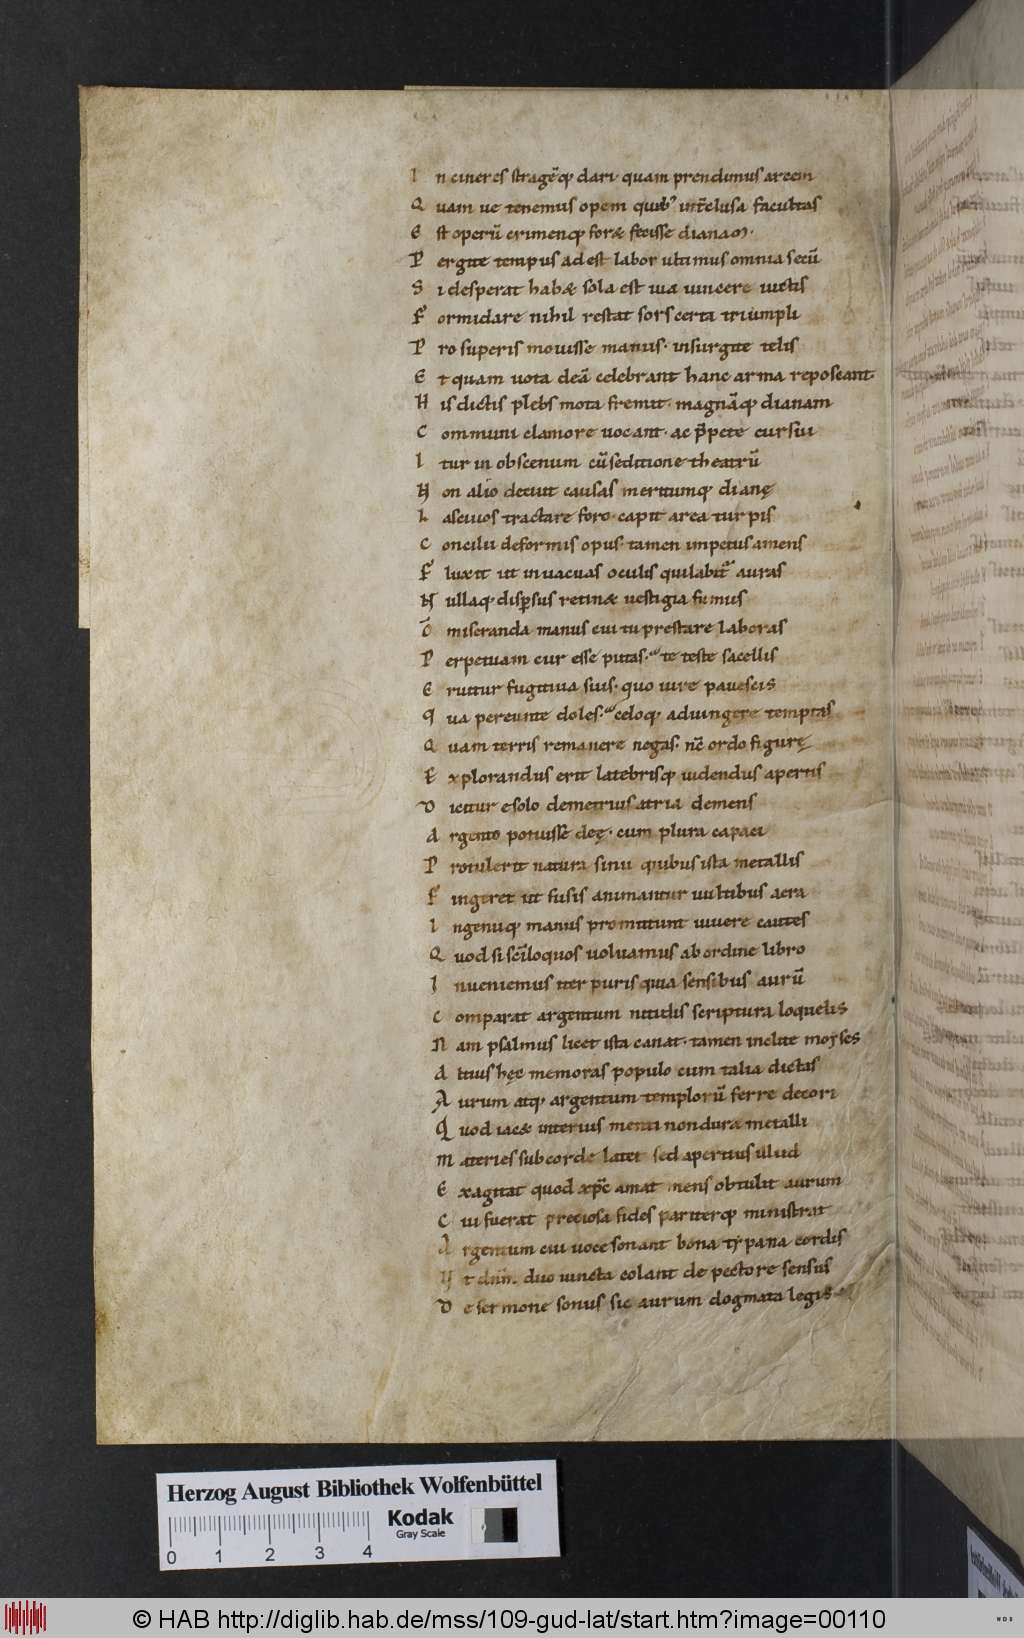 I n cineres stragēq; dari· quam prendimus arcem
Q uam ue tenemus opem quib; int̄clusa facultas
E st operū crimenq; foræ fecisse dianam·
P ergite tempus adest labor ultimus omnia secū
S i desperat habæ sola est uia uincere uictis
F ormidare nihil restat sors certa triumpli
P ro superis mouisse manus· insurgite telis
E t quam uota deā celebrant hanc arma reposcant·
H is dictis plebs mota fremit· magnāq; dianam
C ommuni clamore uocant· ac p̄pete cursu
I tur in obscenum cū seditione theatrū
N on alio decuit causas meritumq; dianę
L asciuos tractare foro· capit area turpis
C oncilii deformis opus· tamen impetus amens
F luxit ut in uacuas oculis qui labit̄ auras
N ullaq; disp̄sus retinæ uestigia fumus
O miseranda manus cui tu prestare laboras
P erpetuam cur esse putas· te teste sacellis
E ruitur fugitiua suis· quo iure pauescis
Q ua pereunte doles· celoq; adiungere temptas
Q uam terris remanere negas· nc̄ ordo figurę
E xplorandus erit latebrisq; uidendus apertis
D icitur e solo demetrius atria demens
A rgento potuisse deę· cum plura capaci
P rotulerit natura sinu quibus ista metallis
F ingeret ut fusis animantur uultibus aera
I ngenuq; manus promittunt uiuere cautes
Q uod si scīloquos uoluamus ab ordine libro
I nueniemus iter puris quia sensibus aurū
C omparat argentum nitidis scriptura loquelis
N am psalmus licet ista canat· tamen inclite moyses
A ltius hęc memoras populo cum talia dictas
A urum atq; argentum templorū ferre decori
Q uod iacæ interius menti non duræ metalli
M ateries sub corde latet sed apertius illud
E xagitat quod xp̄c amat mens obtulit aurum
C ui fuerat preciosa fides pariterq; ministrat
A rgentum cui uoce sonant bona tympana cordis
U t dn̄m duo iuncta colant de pectore sensus
D e sermone sonus sic aurum dogmata legis
Herzog August Bibliothek Wolfenbüttel
Kodak
Gray Scale
0 1 2 3 4
© HAB http://diglib.hab.de/mss/109-gud-lat/start.htm?image=00110